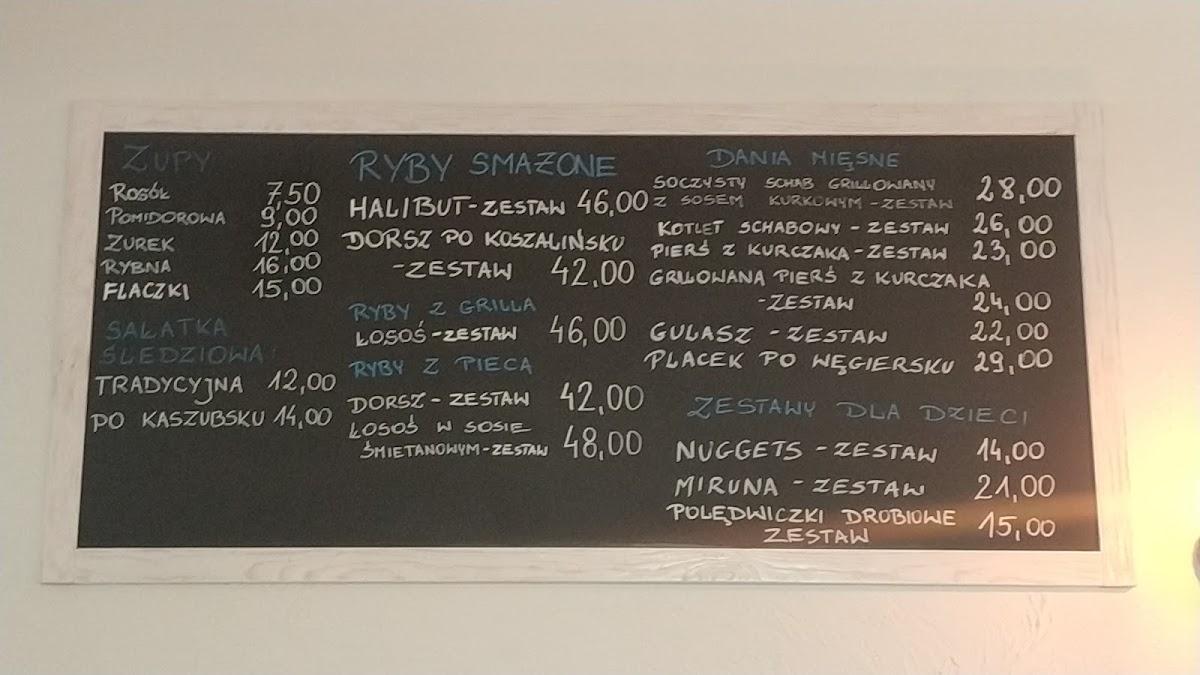 ZUPY
ROSÓŁ 7,50
POMIDOROWA 9,00
ŻUREK 12,00
RYBNA 16,00
FLACZKI 15,00
SAŁATKA
ŚLEDZIOWA:
TRADYCYJNA 12,00
PO KASZUBSKU 14,00
RYBY SMAŻONE
HALIBUT-ZESTAW 46,00
DORSZ PO KOSZALIŃSKU
-ZESTAW 42,00
RYBY Z GRILLA
ŁOSOŚ-ZESTAW 46,00
RYBY Z PIECA
DORSZ-ZESTAW 42,00
ŁOSOŚ W SOSIE
ŚMIETANOWYM-ZESTAW 48,00
DANIA MIĘSNE
SOCZYSTY SCHAB GRILLOWANY
Z SOSEM KURKOWYM-ZESTAW 28,00
KOTLET SCHABOWY-ZESTAW 26,00
PIERŚ Z KURCZAKA-ZESTAW 23,00
GRILLOWANA PIERŚ Z KURCZAKA
-ZESTAW 24,00
GULASZ-ZESTAW 22,00
PLACEK PO WĘGIERSKU 29,00
ZESTAWY DLA DZIECI
NUGGETS-ZESTAW 14,00
MIRUNA-ZESTAW 21,00
POLĘDWICZKI DROBIOWE
ZESTAW 15,00